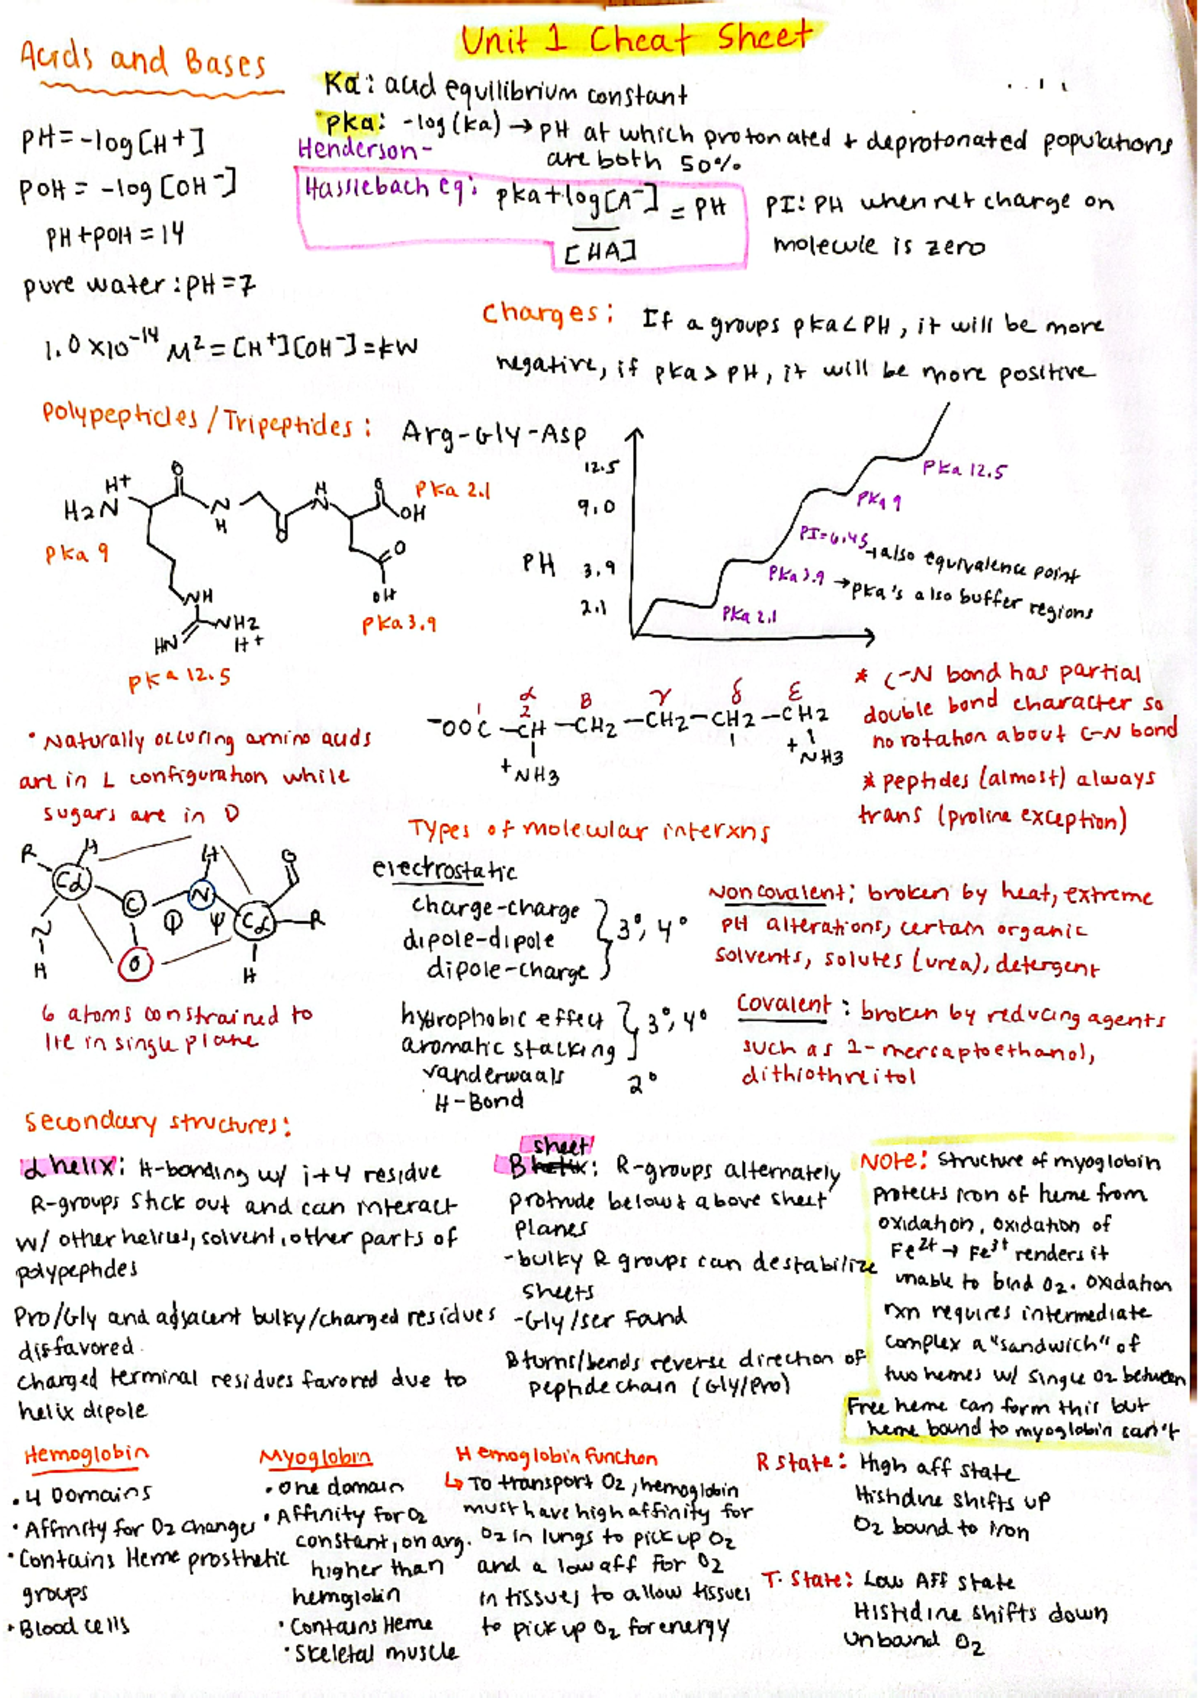 Unit 1 Cheat Sheet
Acids and Bases
PH=-log[H+]
POH = -log[OH-]
PH+POH=14
pure water: PH=7
1.0 x10-14 M2 = [H+][OH-]=kw
Ka: acid equilibrium constant
pka: -log(ka) → pH at which protonated + deprotonated populations
are both 50%
Henderson-
Hasslebach eq: pka+log[A-] = PH
[HA]
PI: PH when net charge on
molecule is zero
Charges: If a groups pka<PH, it will be more
negative, if pka> PH, it will be more positive
Polypeptides/Tripeptides: Arg-Gly-Asp
H+
H2N
Pka 9
O
N
H
O
H
N
O
OH
Pka 2.1
O
OH
Pka 3.9
NH
HN
NH2
H+
pka 12.5
PH
12.5
9.0
3.9
2.1
Pka 12.5
Pka 9
PI=6.45 → also equivalence point
Pka 3.9 → pka's also buffer regions
Pka 2.1
1 α 2 B γ δ ε
-OOC-CH-CH2-CH2-CH2-CH2
+NH3
+NH3
* C-N bond has partial
double bond character so
no rotation about C-N bond
* peptides (almost) always
trans (proline exception)
• Naturally occuring amino acids
are in L configuration while
sugars are in D
R
H
Cα
N
H
C
O
Φ
H
N
Ψ
Cα
O
R
H
6 atoms constrained to
lie in single plane
Types of molecular interxns
electrostatic
charge-charge
dipole-dipole } 3°, 4°
dipole-charge
hydrophobic effect } 3°, 4°
aromatic stacking
vanderwaals 2°
H-Bond
Noncovalent: broken by heat, extreme
PH alterations, certain organic
solvents, solutes (urea), detergent
Covalent: broken by reducing agents
such as 2-mercaptoethanol,
dithiothreitol
Secondary structures:
α helix: H-bonding w/ i+4 residue
R-groups stick out and can interact
w/ other helices, solvent, other parts of
polypeptides
Pro/Gly and adjacent bulky/charged residues
disfavored.
charged terminal residues favored due to
helix dipole
sheet
B helix: R-groups alternately
protrude below + above sheet
planes
-bulky R groups can destabilize
sheets
-Gly/ser Found
B turns/bends reverse direction of
peptide chain (Gly/Pro)
Note: Structure of myoglobin
protects iron of heme from
oxidation, oxidation of
Fe2+ → Fe3+ renders it
unable to bind O2. Oxidation
rxn requires intermediate
complex a "sandwich" of
two hemes w/ single O2 between
Free heme can form this but
heme bound to myoglobin can't
Hemoglobin
• 4 Domains
• Affinity for O2 changes
• Contains Heme prosthetic
groups
• Blood cells
Myoglobin
• one domain
• Affinity for O2
constant, on avg.
higher than
hemglobin
• Contains Heme
• Skeletal muscle
Hemoglobin Function
↳ To transport O2, hemoglobin
must have high affinity for
O2 in lungs to pick up O2
and a low aff for O2
in tissues to allow tissues
to pick up O2 for energy
R state: High aff state
Histidine shifts up
O2 bound to iron
T. State: Low Aff state
Histidine shifts down
Unbound O2